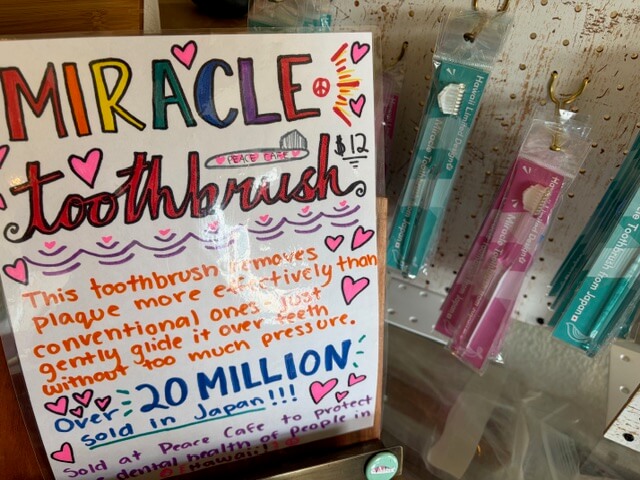 MIRACLE
PEACE CAFE
$12
toothbrush
This toothbrush removes
plaque more effectively than
conventional ones. Just
gently glide it over teeth
without too much pressure.
Over 20 MILLION
sold in Japan!!!
Sold at Peace Cafe to protect
dental health of people in
Hawaii!
Hawaii Limited Design
Miracle
Hawaii Limited Design
Miracle
Toothbrush from Japan